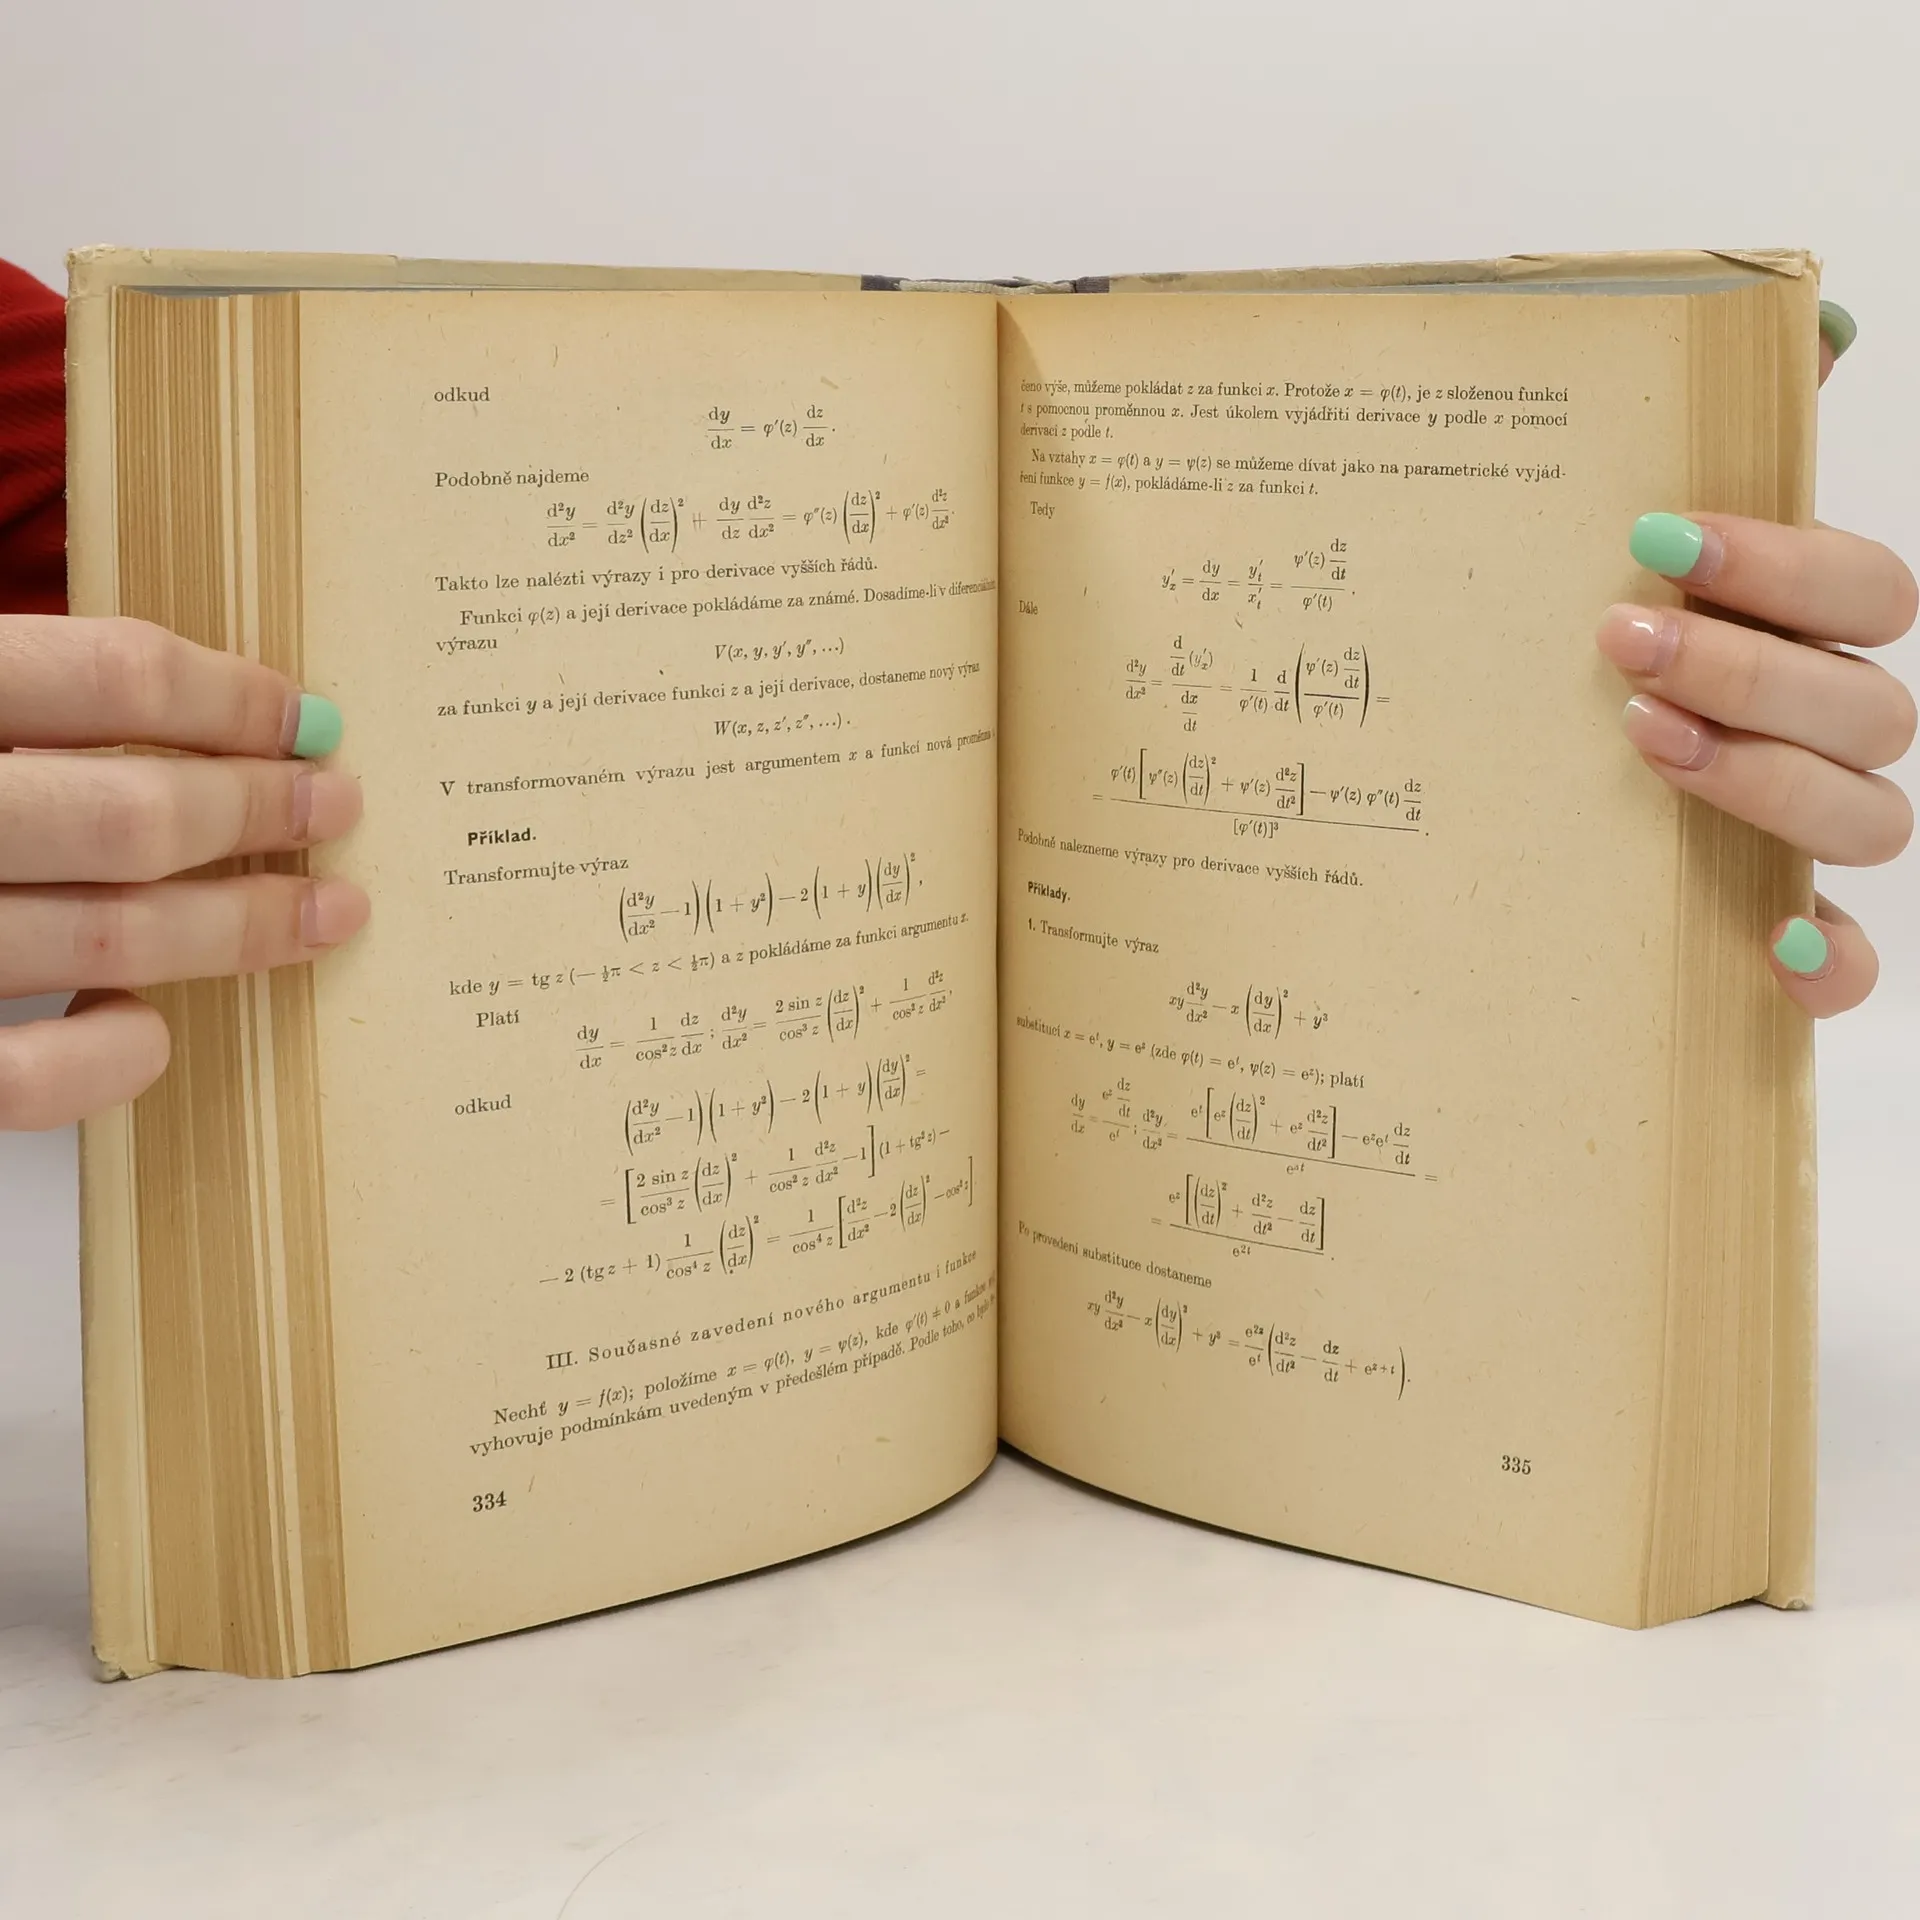 odkud
dy/dx = φ′(z) dz/dx .
Podobně najdeme
d²y/dx² = d²y/dz² (dz/dx)² + dy/dz d²z/dx² = φ″(z) (dz/dx)² + φ′(z) d²z/dx² .
Takto lze nalézti výrazy i pro derivace vyšších řádů.
Funkci φ(z) a její derivace pokládáme za známé. Dosadíme-li v diferenciálním
výrazu
V(x, y, y′, y″, ...)
za funkci y a její derivace funkci z a její derivace, dostaneme nový výraz
W(x, z, z′, z″, ...) .
V transformovaném výrazu jest argumentem x a funkcí nová proměnná
Příklad.
Transformujte výraz
(d²y/dx² — 1) (1 + y²) — 2 (1 + y) (dy/dx)² ,
kde y = tg z (— ½π < z < ½π) a z pokládáme za funkci argumentu x.
Platí
dy/dx = 1/cos² z dz/dx ; d²y/dx² = 2 sin z/cos³ z (dz/dx)² + 1/cos² z d²z/dx² ,
odkud
(d²y/dx² — 1) (1 + y²) — 2 (1 + y) (dy/dx)² =
= [2 sin z/cos³ z (dz/dx)² + 1/cos² z d²z/dx² — 1] (1 + tg² z) —
— 2 (tg z + 1) 1/cos⁴ z (dz/dx)² = 1/cos⁴ z [d²z/dx² — 2 (dz/dx)² — cos² z]
III. Současné zavedení nového argumentu i funkce
Nechť y = f(x); položíme x = φ(t), y = ψ(z), kde φ′(t) ≠ 0 a funkce
vyhovuje podmínkám uvedeným v předešlém případě. Podle toho, co bylo
334
čeno výše, můžeme pokládat z za funkci x. Protože x = φ(t), je z složenou funkcí
t s pomocnou proměnnou x. Jest úkolem vyjádřiti derivace y podle x pomocí
derivací z podle t.
Na vztahy x = φ(t) a y = ψ(z) se můžeme dívat jako na parametrické vyjád-
ření funkce y = f(x), pokládáme-li z za funkci t.
Tedy
y′ₓ = dy/dx = y′ₜ/x′ₜ = ψ′(z) dz/dt / φ′(t) .
Dále
d²y/dx² = d/dt (y′ₓ) / dx/dt = 1/φ′(t) d/dt (ψ′(z) dz/dt / φ′(t)) =
= φ′(t) [ψ″(z) (dz/dt)² + ψ′(z) d²z/dt²] — ψ′(z) φ″(t) dz/dt / [φ′(t)]³ .
Podobně nalezneme výrazy pro derivace vyšších řádů.
Příklady.
1. Transformujte výraz
xy d²y/dx² — x (dy/dx)² + y³
substitucí x = eᵗ, y = eᶻ (zde φ(t) = eᵗ, ψ(z) = eᶻ); platí
dy/dx = eᶻ dz/dt / eᵗ ; d²y/dx² = eᵗ [eᶻ (dz/dt)² + eᶻ d²z/dt²] — eᶻeᵗ dz/dt / e³ᵗ =
= eᶻ [(dz/dt)² + d²z/dt² — dz/dt] / e²ᵗ .
Po provedení substituce dostaneme
xy d²y/dx² — x (dy/dx)² + y³ = e²ᶻ/eᵗ (d²z/dt² — dz/dt + eᶻ⁺ᵗ) .
335